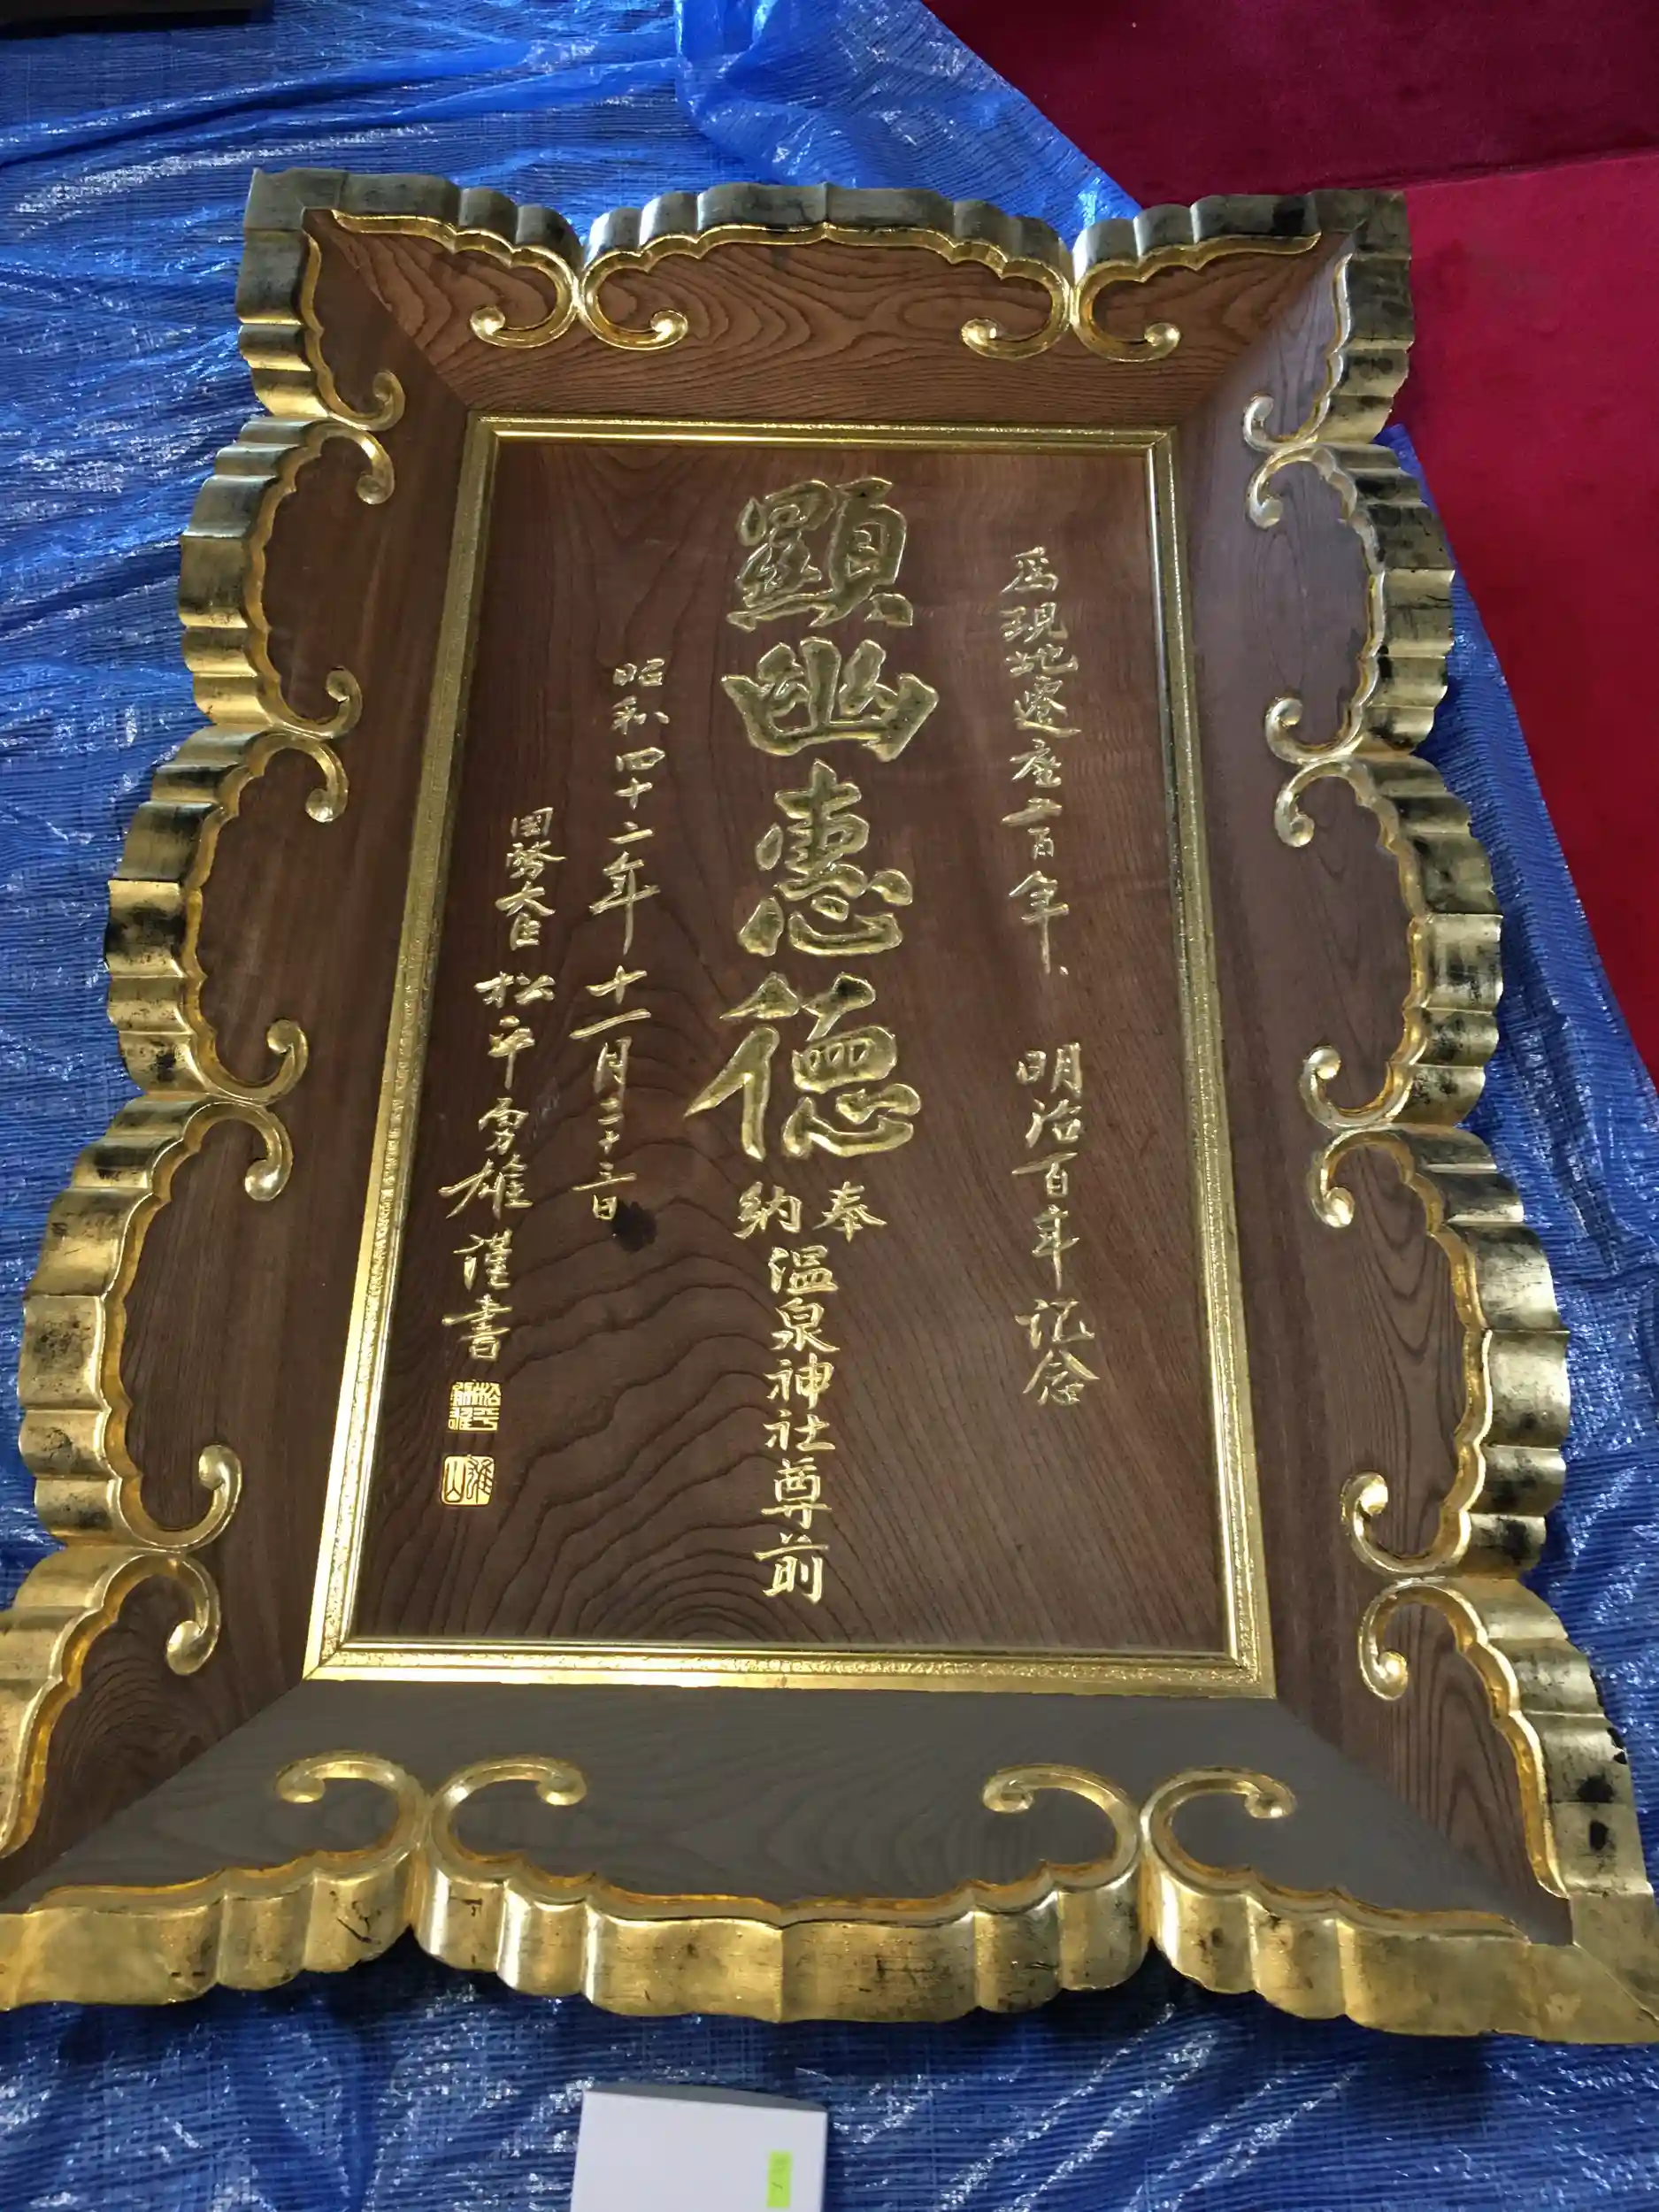 為現地遷座百年、 明治百年記念
顯幽恵徳
奉納
温泉神社尊前
昭和四十二年十一月二十三日
国務大臣 松平勇雄 謹書
松平勇雄
雄山